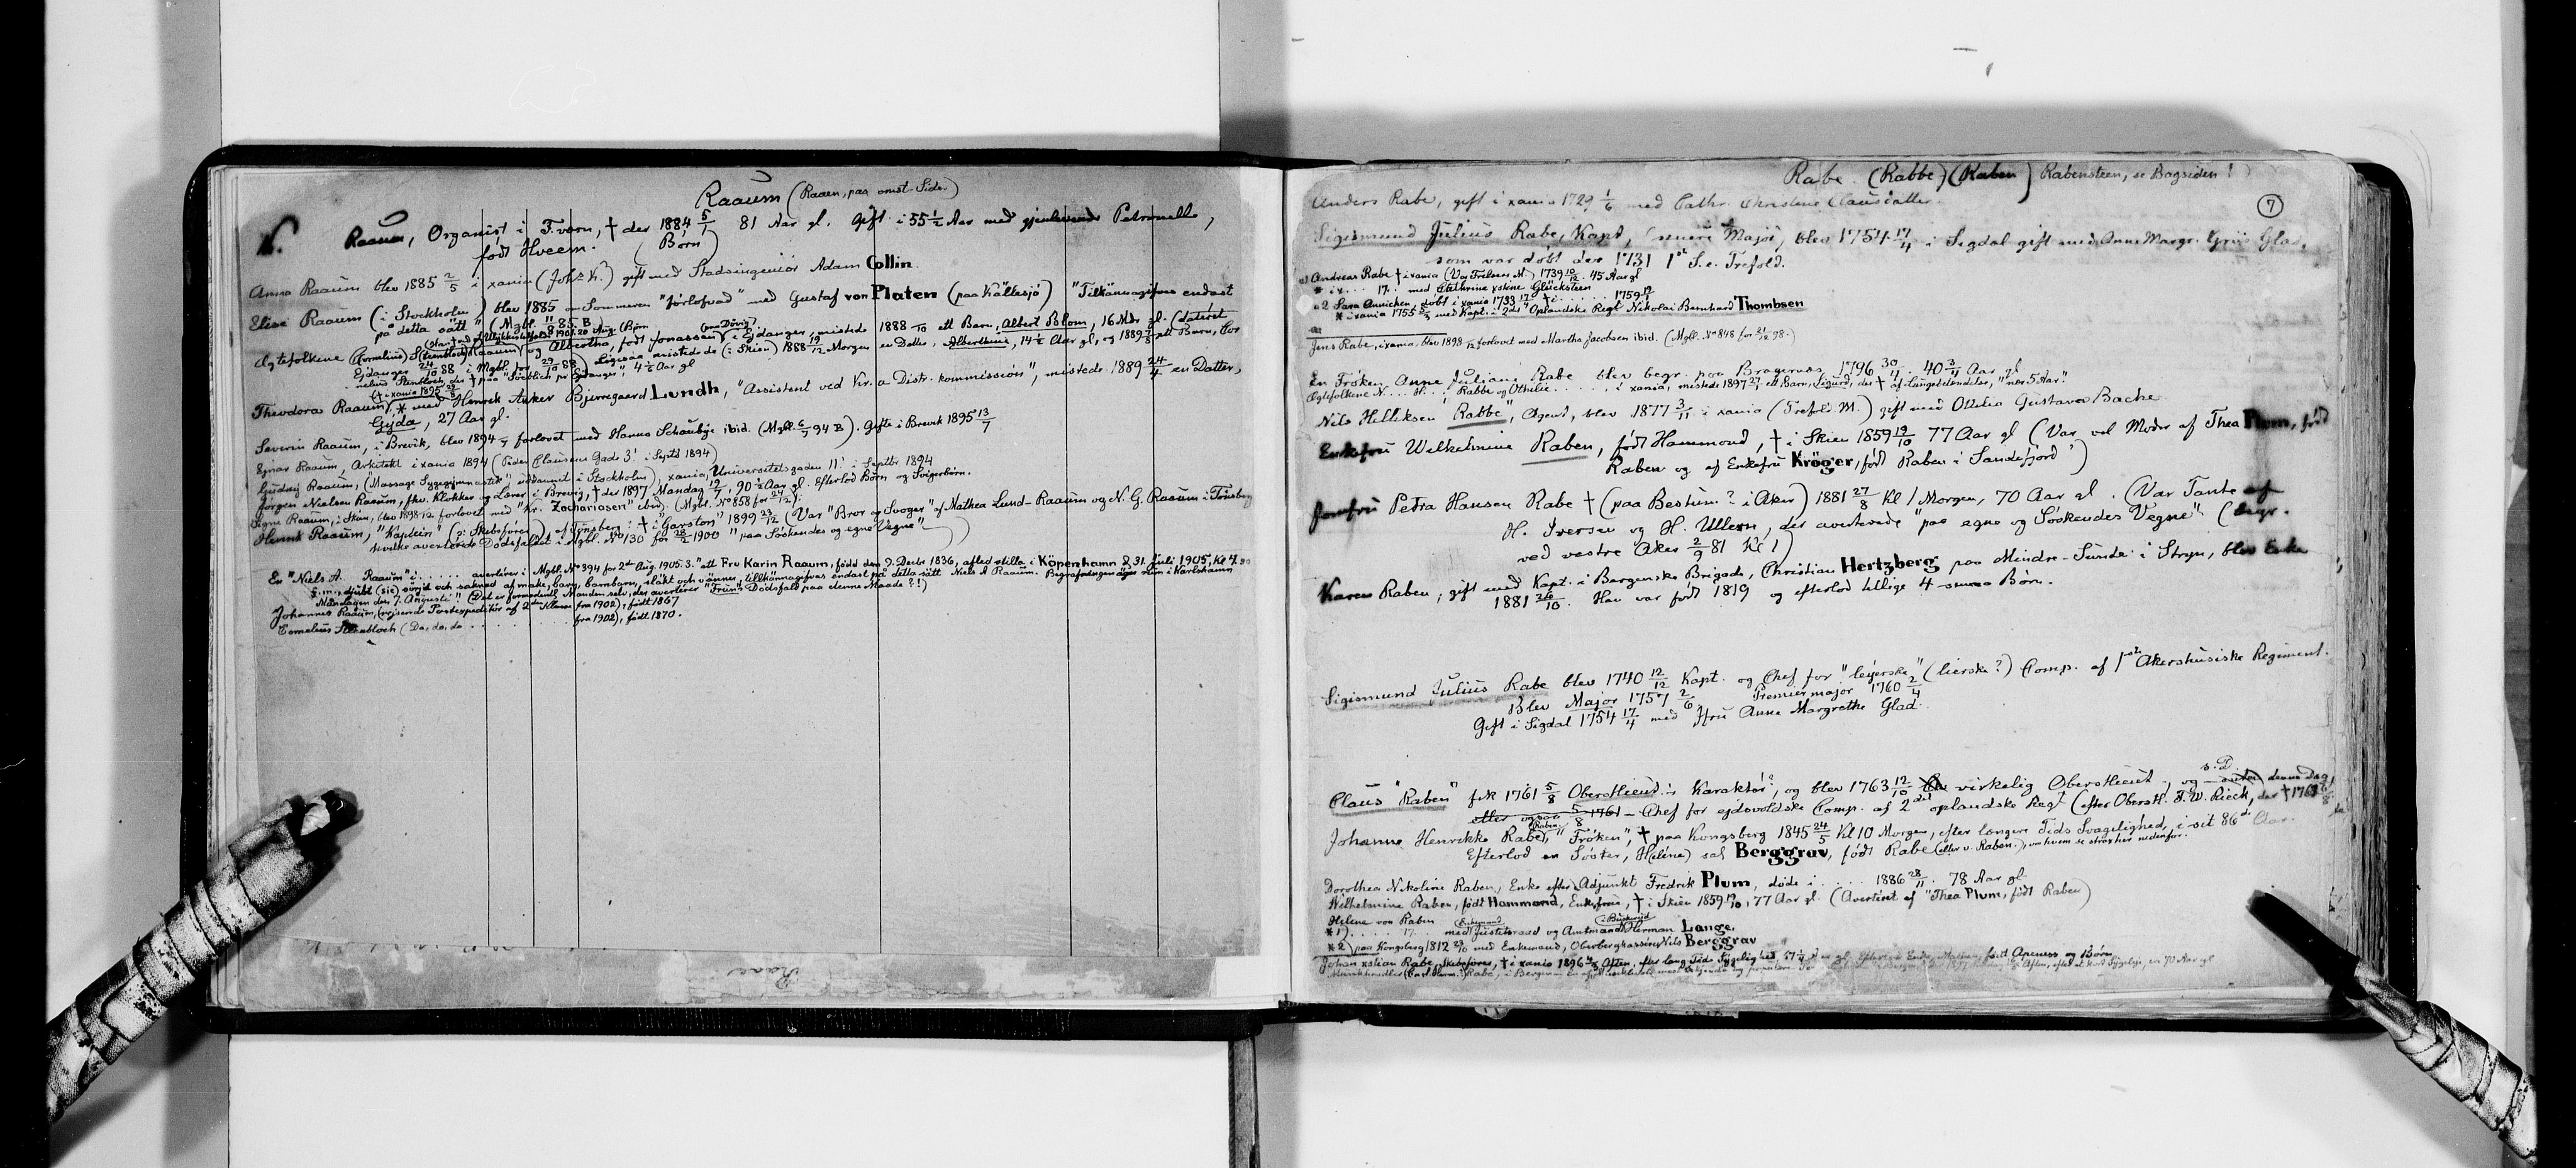 Raaum (Raaen, paa omst. Side.)
N. Raaum, Organist i F.værn, † der 1884 5/7 81 Aar gl. Gift i 55½ Aar med gjenlevende Petronelle,
født Hveem. (Børn)
Anna Raaum blev 1885 2/5 i xania (Johs K.) gift med Stadsingeniør Adam Collin.
Elise Raaum (i Stockholm) blev 1885 om Sommeren "förlofvad" med Gustaf von Platen (paa Källesjö) "Tilkännagifves endast
på detta sätt" (Mgbl. 11/8 85. B
Ægtefolkene (Cornelius) S(teenbloch) Raaum og Albertha, født Jonassen, i Ejdanger, mistede 1888 /10 ett Barn, Albert Blom, 16 Mdr gl. (dateret
Ejdanger 24/10 88 i Mgbl. for 29/10 88) Ligesaa mistede de (i Skien) 1888 19/12 Morgen en Datter, Albertine, 14½ Aar gl, og 1889 ett Barn, Cor
nelius Stenbloch, der † paa "Isachlich pr Ejdanger", 4½ Aar gl
Theodora Raaum, * med Henrik Anker Bjerregaard Lundh, "Assistent ved Kr.a Distr. kommission", mistede 1889 24/4 en Datter,
Gyda, 27 Aar gl.
Severin Raaum, i Brevik, blev 1894 /7 forlovet med Hanna Schaubye ibid. (Mgbl. 6/7 94 B). Gifte i Brevik 1895 13/7
Ejnar Raaum, Arkitekt i xania 1894 (Peder Clausens Gade 3' i Septb 1894)
Gudny Raaum, ("Massage Sygegymnastik" uddannet i Stockholm), xania, Universitetsgaden 11' i Septbr 1894
Jørgen Nielsen Raaum, fhv. Klokker og Lærer i Brevig, † der 1897 Mandag 19/7, 90½ Aar gl. Efterlod Børn og Svigerbørn.
Signe Raaum, i Skien, blev 1898 /12 forlovet med "Kr. Zachariasen" ibid. (Mgbl. No 858 for 24/12).
Henrik Raaum, "Kaptein" (ɔ: Skibsfører), af Tönsberg, † i "Garston" 1899 23/12 (Var "Bror og Svoger" af Mathea Lund-Raaum og N. G. Raaum i Tönsberg
hvilke averterede Dødsfaldet i Mgbl. No 130 for 28/2 1900 "paa Söskendes og egne Vegne")
En "Niels A. Raaum" i . . . . . averterer i Mgbl. No 394 for 2det Aug. 1905. 3. "att Fru Karin Raaum, född den 9. Decbr 1836, afled stilla i Köpenhamn d. 31. Juli 1905, Kl 4.30
f. m., djubt (sic) sörjd och saknad af make, barn, barnbarn, släkt och vänner, tillkännagifves endast på detta sätt. Niels A Raaum. Begrafningen äger rum i Karlshamn
Måndagen den 7. Augusti." (Det er formodentl Manden selv, der averterer "Fruns" Dødsfald paa denne Maade?!)
Johannes Raaum, (rejsende Postexpeditör af 2den Klasse fra 1902), født 1867
Cornelius Stenbloch (Do, do, do . . . . . . . . . fra 1902), født 1870.
Raae
Rabe. (Rabbe) (Raben) Rabensteen, se Bagsiden!
7
Anders Rabe, gift i xania 1729 1/6 med Cathr. Christine Clausdatter.
Sigismund Julius Rabe, Kapt, (senere Major), blev 1754 17/4 i Sigdal gift med Anne Margr. Griis Glad,
som var døbt den 1731 1ste S. e. Trefold.
Andreas Rabe † i xania (Vor Frelsers M.) 1739 10/12. 45 Aar gl
* i x . . . 17 . med Cathrine xstine Glücksteen
2 Sara Annichen, døbt i xania 1733 17/ † i . . . . . . 1759 12/
* i xania 1755 5/5 med Kapt. i 2det Oplandske Regt Nikolai Bernhard Thombsen
Jens Rabe, i xania, blev 1898 /12 forlovet med Martha Jacobsen ibid. (Mgbl. No 848 for 21/12 98.)
En Frøken Anne Juliane Rabe blev begr. paa Bragernæs 1796 30/4. 40 3/4 Aar gl
Ægtefolkene N . . . . H . . . Rabbe og Othilie . . . . . . i xania, mistede 1897 27/ ett Barn, Sigurd, der † af Lungebetændelse, "nær 5 Aar".
Nils Helliksen "Rabbe", Agent, blev 1877 3/11 i xania (Trefold. M.) gift med Ottilia Gustava Bache
Enkefru Wilhelmine Raben, født Hammond, † i Skien 1859 19/10 77 Aar gl (Var vel Moder af Thea Plum, født
Raben og af Enkefru Kröger, født Raben i Sandefjord?)
Jomfru Petra Hansen Rabe † (paa Bestum? i Aker) 1881 27/8 Kl 1 Morgen, 70 Aar gl. (Var Tante af
H. Iversen og H. Ullern, der averterede "paa egne og Söskendes Vegne". (Begr.
ved vestre Aker 2/9 81 Kl 1)
Karen Raben, gift med Kapt. i Bergenske Brigade, Christian Hertzberg paa Mindre-Sunde i Stryn, blev Enke
1881 26/10. Han var født 1819 og efterlod tillige 4 Børn.
Sigismund Julius Rabe blev 1740 12/12 Kapt. og Chef for "leyerske" (lierske?) Comp. af 1ste Akershusiske Regiment.
Blev Major 1757 2/6. Premiermajor 1760 2/4
Gift i Sigdal 1754 17/4 med Jfru Anne Margrethe Glad.
Claus "Raben" fik 1761 5/8 Oberstlieut.s Karaktér, og blev 1763 12/10 virkelig Oberstlieut., og s. D. denne Dag,
eller ogsaa 5/8 1761 – Chef for ejdsvoldske Comp. af 2det oplandske Regt (efter Oberstl. F. W. Rieck, der † 1763
Johanne Henrikke Rabe, (Raben) "Frøken", † paa Kongsberg 1845 24/5 Kl 10 Morgen, efter længere Tids Svagelighed, i sit 86de Aar.
Efterlod en Søster, H(eléne) sal Berggrav, født Rabe (eller v. Raben.), om hvem se strax her nedenfor.
Dorothea Nikoline Raben, Enke efter Adjunkt Fredrik Plum, døde i . . . . . 1886 28/11. 78 Aar gl.
Wilhelmine Raben, født Hammond, Enkefrue, † i Skien 1859 19/10, 77 Aar gl. (Avertéret af "Thea Plum, født Raben)
Helene von Raben
*1) . . . . . 17 . . . (Enkemand) med Justitsraad og Amtmand (i Buskerud) Herman Lange
*2) paa Kongsberg 1812 /10 med Enkemand, Oberbergassessor Nils Berggrav
Johan xstian Rabe, Skibsfører, † i xania 1896 4/5 Aften, efter lang Tids Sygelighed, 57½ Aar gl. født Apenæss og Børn.
Musikhandler (Carl Herm.) Rabe, i Bergen